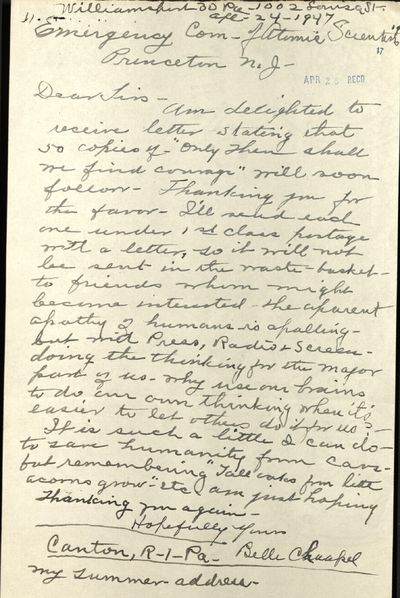 Williamsport 30 Pa - 1002 Louisa St -
Apr - 24 - 1947
Emergency Com - of Atomic Scientists
17
Princeton N. J -
APR 25 RECD
Dear Sirs - Am delighted to
receive letter stating that
50 copies of - "Only Then shall
we find courage" will soon
follow - Thanking you for
the favor - I'll send each
one under 1st class postage
with a letter, so it will not
be sent in the waste-basket -
to friends whom might
become interested - the apparent
apathy of humans - is apalling -
but with Press, Radio & Screen -
doing the thinking for the major
part of us - why use our brains
to do our own thinking when it's
easier to let others do it for us? -
It is such a little I can do -
to save humanity from
but remembering "Tall oaks from little
acorns grow" etc, am just hoping
Thanking you again -
Hopefully yours
Canton, R-1-Pa - Belle Chaapel
my summer address -